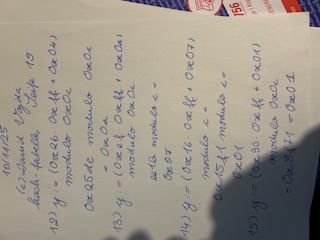 10/11/25
(c) David Vajda
Hash-Tabelle Seite 19
12) y := (0x26 · 0xff + 0x04)
modulo 0x0c
0x25de modulo 0x0c
= 0x0a
13) y := (0x2f · 0xff + 0x0a)
modulo 0x0c
modulo c =
0x07
14) y := (0x16 · 0xff + 0x07)
modulo c =
0x15f1 modulo c =
0x01
15) y := (0x90 · 0xff + 0x01)
modulo 0x0c
= 0x8f71 = 0x01
156